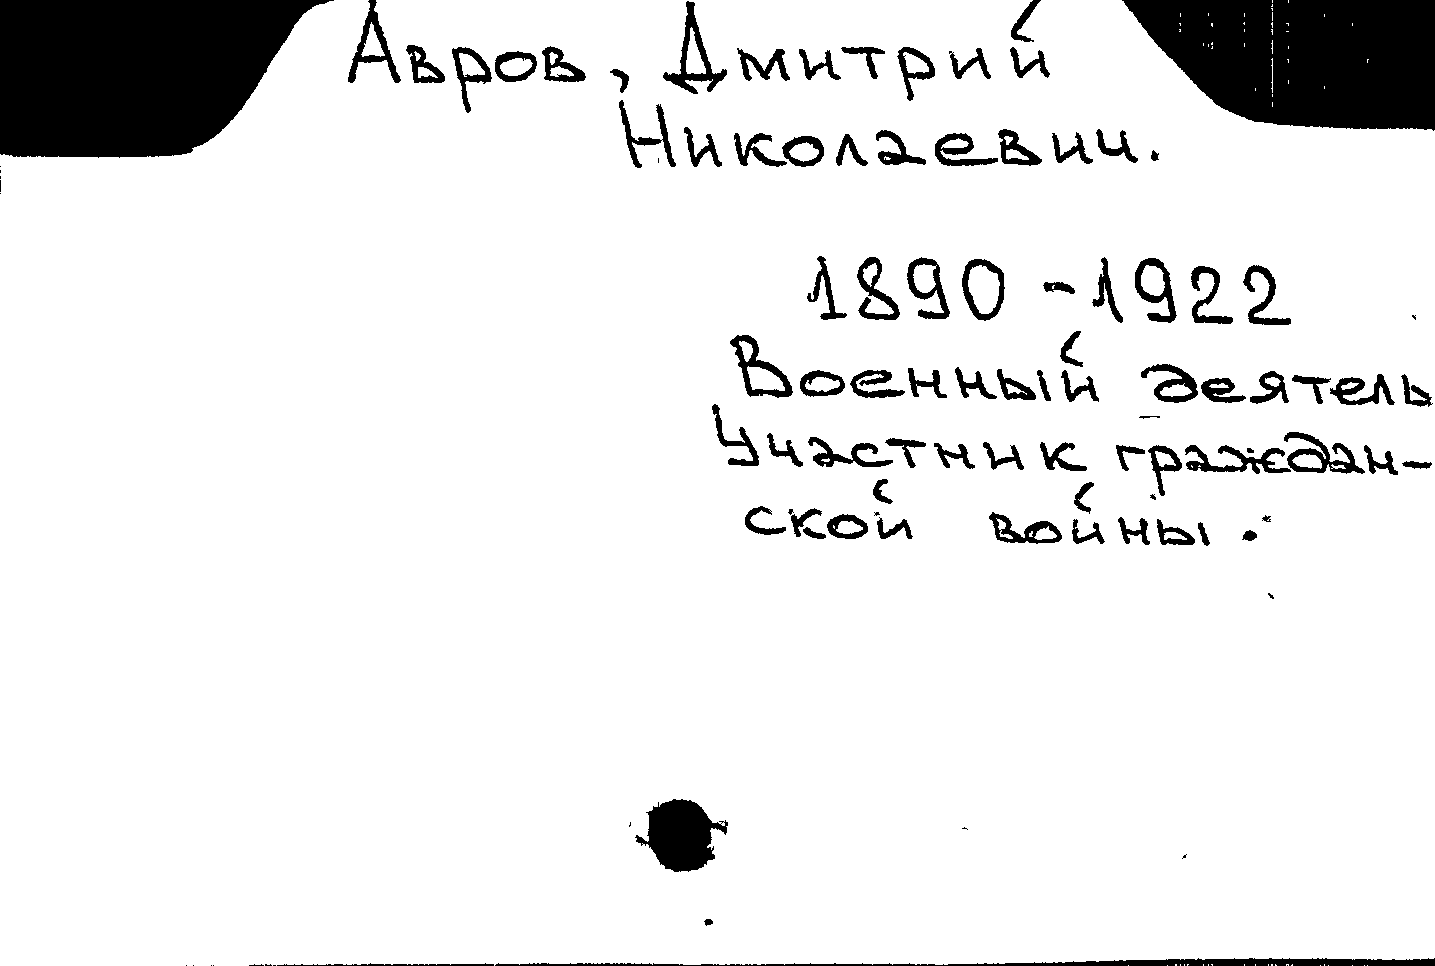 Авров, Дмитрий
Николаевич.
1890-1922
Военный деятель
Участник граждан-
ской войны.